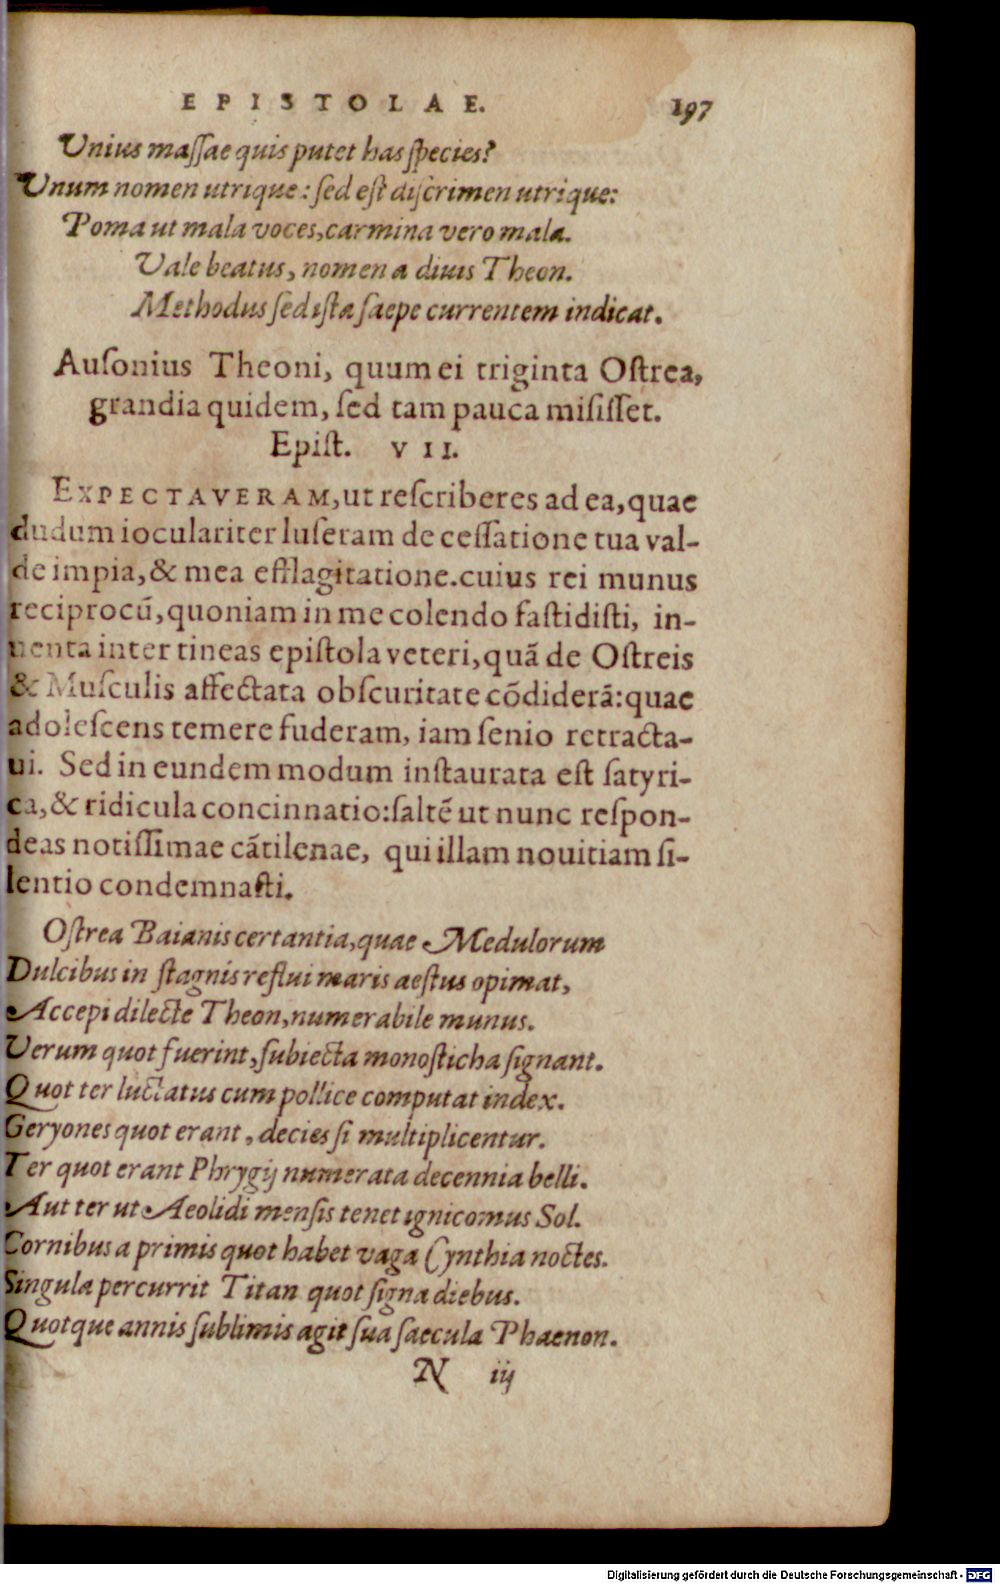 EPISTOLAE. 197
Unius maſſae quis putet has ſpecies?
Unum nomen utrique: ſed eſt diſcrimen utrique:
Poma ut mala voces, carmina vero mala.
Vale beatus, nomen a diuis Theon.
Methodus ſed iſta ſaepe currentem indicat.
Auſonius Theoni, quum ei triginta Oſtrea,
grandia quidem, ſed tam pauca miſiſſet.
Epiſt. VII.
EXPECTAVERAM, ut reſcriberes ad ea, quae
dudum ioculariter luſeram de ceſſatione tua val-
de impia, & mea efflagitatione. cuius rei munus
reciprocū, quoniam in me colendo faſtidiſti, in-
uenta inter tineas epiſtola veteri, quā de Oſtreis
& Muſculis affectata obſcuritate cōdiderā: quae
adoleſcens temere fuderam, iam ſenio retracta-
ui. Sed in eundem modum inſtaurata eſt ſatyri-
ca, & ridicula concinnatio: ſaltē ut nunc reſpon-
deas notiſſimae cātilenae, qui illam nouitiam ſi-
lentio condemnaſti.
Oſtrea Baianis certantia, quae Medulorum
Dulcibus in ſtagnis reflui maris aeſtus opimat,
Accepi dilecte Theon, numerabile munus.
Verum quot fuerint, ſubiecta monoſticha ſignant.
Quot ter luctatus cum pollice computat index.
Geryones quot erant, decies ſi multiplicentur.
Ter quot erant Phrygij numerata decennia belli.
Aut ter ut Aeolidi menſis tenet ignicomus Sol.
Cornibus a primis quot habet vaga Cynthia noctes.
Singula percurrit Titan quot ſigna diebus.
Quotque annis ſublimis agit ſua ſaecula Phaenon.
N iij
Digitalisierung gefördert durch die Deutsche Forschungsgemeinschaft - DFG